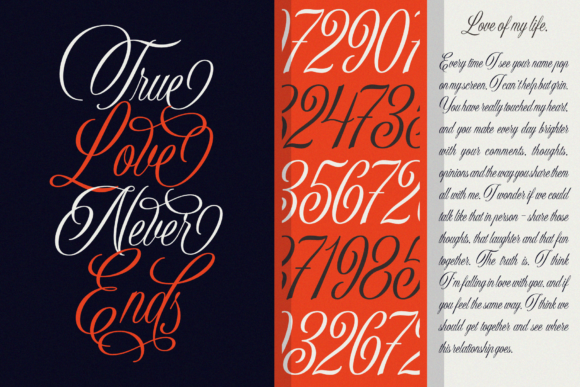 True
Love
Never
Ends
72901
2473
35672
71985
32672
Love of my life.
Every time I see your name pop
on my screen, I can't help but grin.
You have really touched my heart,
and you make every day brighter
with your comments, thoughts,
opinions and the way you share them
all with me. I wonder if we could
talk like that in person - share those
thoughts, that laughter and that fun
together. The truth is, I think
I'm falling in love with you, and if
you feel the same way, I think we
should get together and see where
this relationship goes.